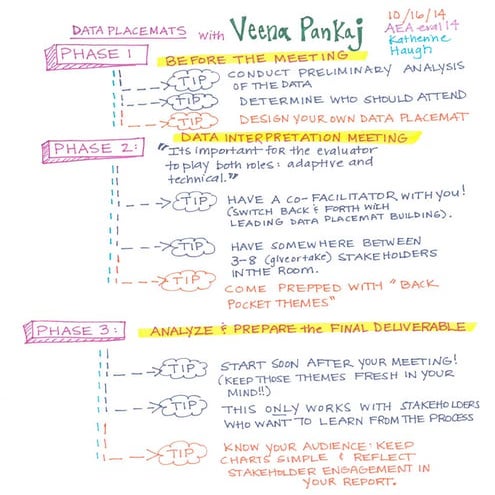 DATA PLACEMATS with Veena Pankaj
10/16/14
AEA eval 14
Katherine
Haugh
PHASE 1
BEFORE THE MEETING
TIP CONDUCT PRELIMINARY ANALYSIS
OF THE DATA
TIP DETERMINE WHO SHOULD ATTEND
TIP DESIGN YOUR OWN DATA PLACEMAT
PHASE 2:
DATA INTERPRETATION MEETING
"It's important for the evaluator
to play both roles: adaptive and
technical."
TIP HAVE A CO-FACILITATOR WITH YOU!
(SWITCH BACK & FORTH WITH
LEADING DATA PLACEMAT BUILDING).
TIP HAVE SOMEWHERE BETWEEN
3-8 (give or take) STAKEHOLDERS
IN THE ROOM.
TIP COME PREPPED WITH "BACK
POCKET THEMES"
PHASE 3:
ANALYZE & PREPARE the FINAL DELIVERABLE
TIP START SOON AFTER YOUR MEETING!
(KEEP THOSE THEMES FRESH IN YOUR
MIND!!)
TIP THIS ONLY WORKS WITH STAKEHOLDERS
WHO WANT TO LEARN FROM THE PROCESS
TIP KNOW YOUR AUDIENCE: KEEP
CHARTS SIMPLE & REFLECT
STAKEHOLDER ENGAGEMENT IN
YOUR REPORT.